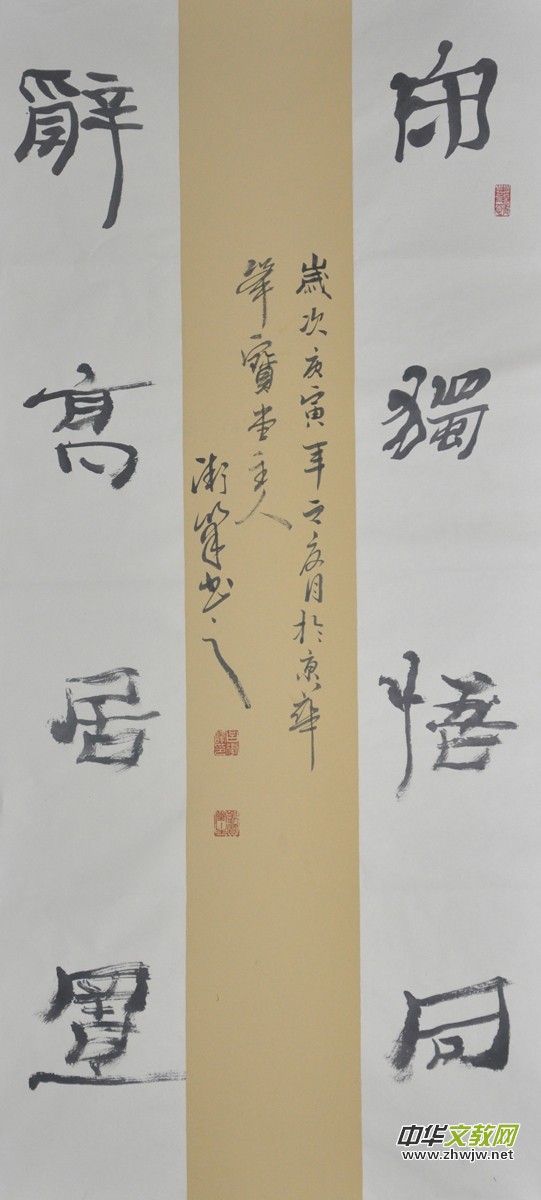 獨悟同
辭高居置
歲次庚寅年之夏月於京華
寶堂主人
書之
中华文教网
www.zhwjw.net